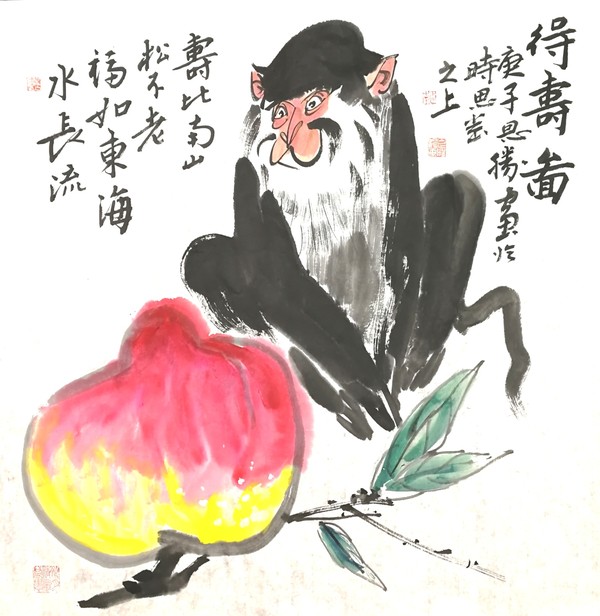 得壽圖
庚子思勝畫於
時思齋
之上
壽比南山
松不老
福如東海
水長流